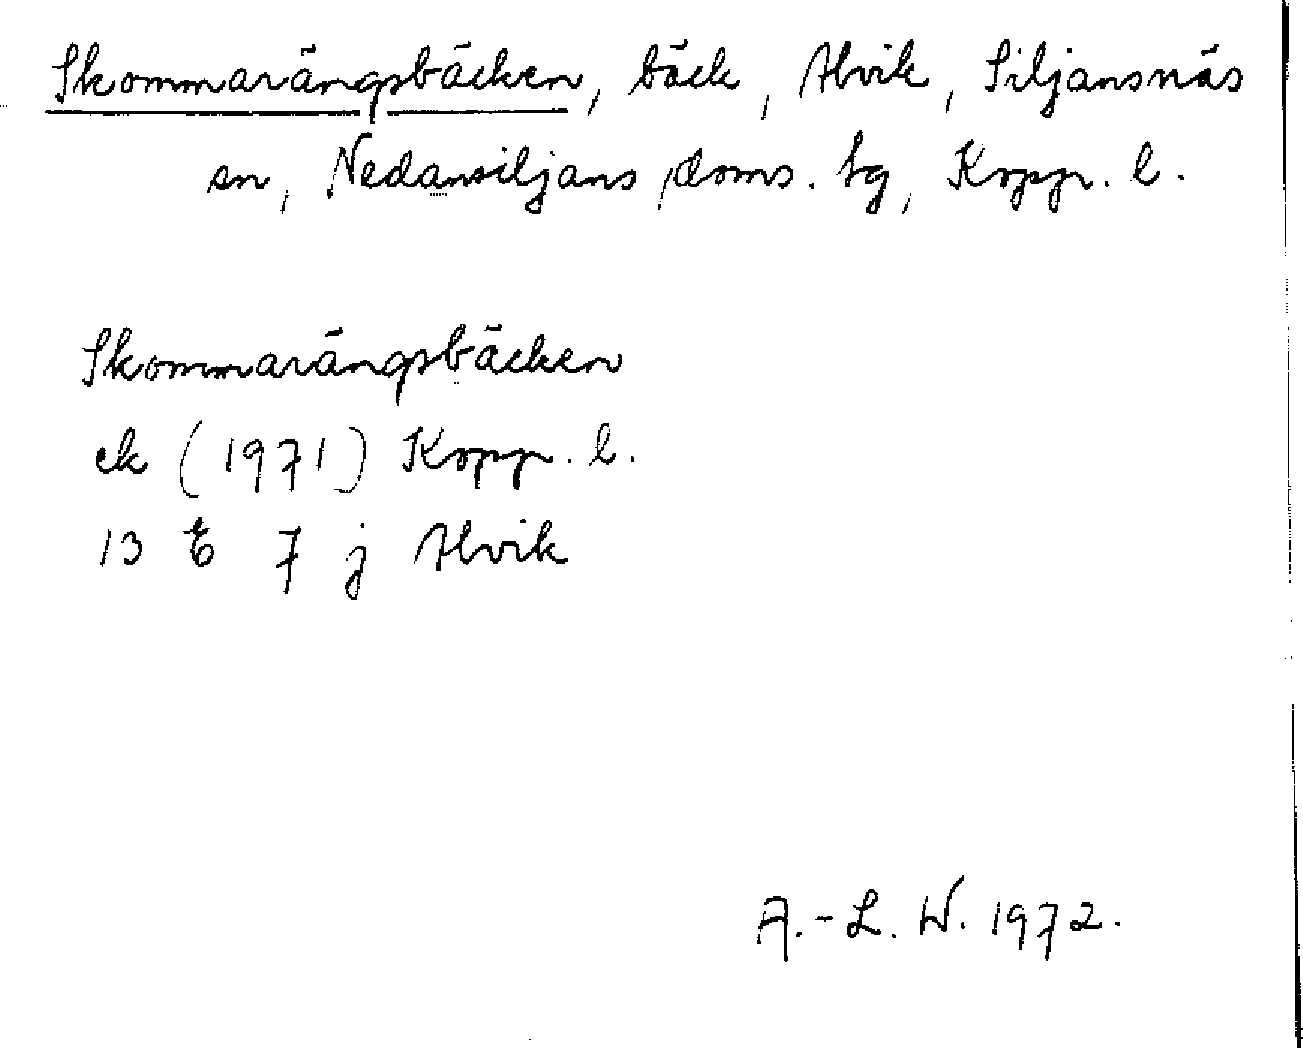 Skommarängsbäcken, bäck, Alvik, Siljansnäs
sn, Nedansiljans doms. tg, Kopp. l.
Skommarängsbäcken
ek (1971) Kopp. l.
13 E 7 j Alvik
A.-L. W. 1972.